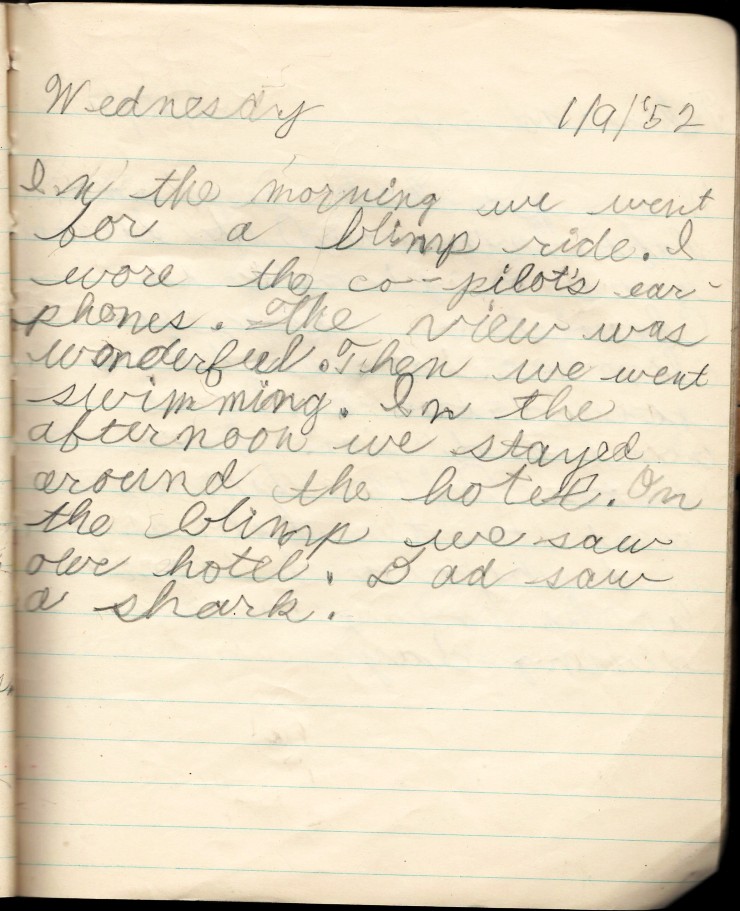 Wednesday 1/9/'52
In the morning we went
for a blimp ride. I
wore the co-pilot's ear-
phones. The view was
wonderful. Then we went
swimming. In the
afternoon we stayed
around the hotel. On
the blimp we saw
our hotel. Dad saw
a shark.